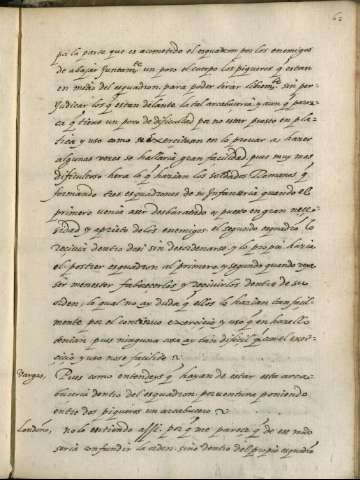 62
pa la parte que es acometido el esquadron por los enemigos
de abajar Juntamte un poco el cuerpo los piqueros q estan
en medio del esquadron para poder tirar librem.te sin per
Judicar los q estan delante la tal arcabuceria y aun q parez
ca q tiene un poco de dificultad por no estar puesto en pla
tica y uso como se exercitasen en lo provar a hacer
algunas veces se hallaria gran facilidad pues muy mas
dificultoso hera lo q hacian los soldados Romanos q
formando tres esquadrones de su Infanteria quando el
primero venia a ser desbaratado o puesto en gran nece
sidad y aprieto de los enemigos el segundo esquadron lo
recivia dentro de si sin desordenarse y lo propio hacia
el postrer esquadron al primero y segundo quando
ser menester favorecerlos y recivirlos dentro de su
orden, lo qual no ay duda q ellos lo hacian tan facil
mente por el continuo exercicio y uso q en hacello
tenian pues ninguna cosa ay tan dificil q con el exer
cicio y uso no se facilite
Vargas, Pues como entendeys q hayan de estar esta arca
buceria dentro del esquadron por ventura poniendo
entre dos piqueros un arcabucero
Londoño, no lo entiendo assi por q me parece q de ese modo
seria confundir la orden sino dentro del propio esquadron